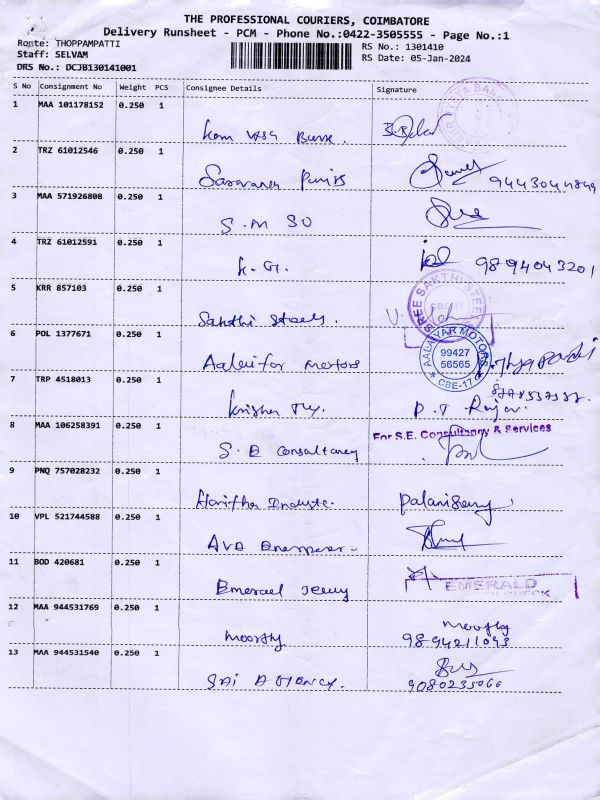 THE PROFESSIONAL COURIERS, COIMBATORE
Delivery Runsheet - PCM - Phone No.:0422-3505555 - Page No.:1
Route: THOPPAMPATTI
Staff: SELVAM
DRS No.: DCJB130141001
RS No.: 1301410
RS Date: 05-Jan-2024
S No Consignment No Weight PCS Consignee Details Signature
1 MAA 101178152 0.250 1
2 TRZ 61012546 0.250 1
9443044849
3 MAA 571926808 0.250 1
S.M SO
4 TRZ 61012591 0.250 1
K. G. 9894043201
5 KRR 857103 0.250 1
SREE SAKTHI STEEL
Sakthi Steels.
6 POL 1377671 0.250 1
AALAIYAR MOTORS
99427
56565
CBE-17
Motors
7 TRP 4518013 0.250 1
Krishna Tex. P.T. Rajan.
8 MAA 106258391 0.250 1
For S.E. Consultancy & Services
S.E Consultancy
9 PNQ 757028232 0.250 1
Palanisamy
10 VPL 521744588 0.250 1
AVD
11 BOD 420681 0.250 1
EMERALD
Emerald
12 MAA 944531769 0.250 1
Moorthy
Moorthy 9894211093
13 MAA 944531540 0.250 1
SAI AGENCY. 9080235066